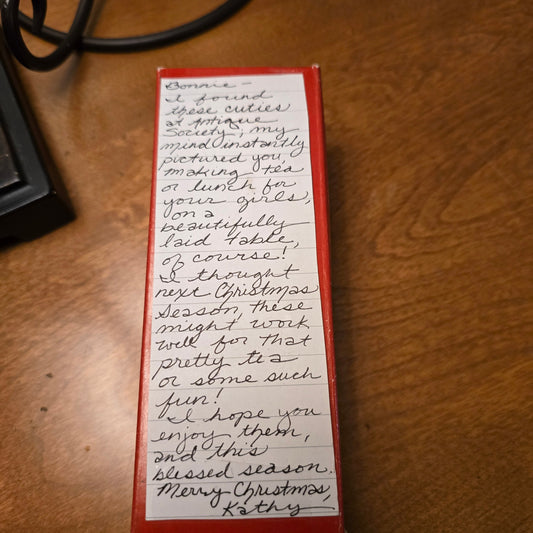 Bonnie -
I found
these cuties
at Antique
Society, my
mind instantly
pictured you,
making tea
or lunch for
your girls,
on a
beautifully
laid table,
of course!
I thought
next Christmas
Season, these
might work
well for that
pretty tea
or some such
fun!
I hope you
enjoy them,
and this
blessed season.
Merry Christmas,
Kathy